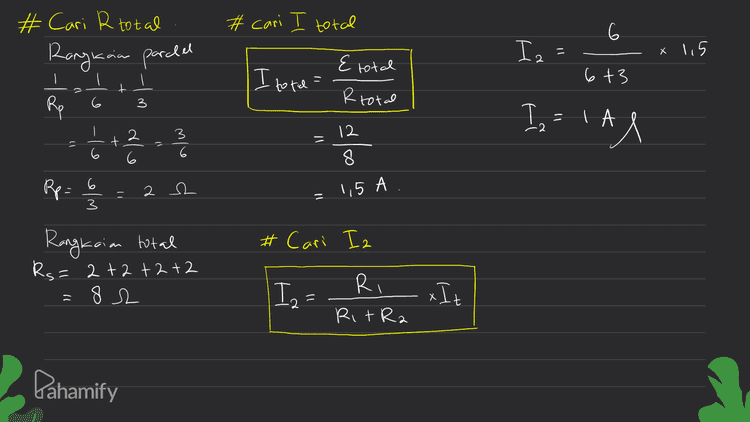 # Cari R total
Rangkaian paralel
1/Rp = 1/6 + 1/3
= 1/6 + 2/6 = 3/6
Rp = 6/3 = 2 Ω
Rangkaian total
Rs = 2 + 2 + 2 + 2
= 8 Ω
# cari I total
I total = Ɛ total / R total
= 12/8
= 1,5 A.
# Cari I2
I2 = R1 / R1 + R2 × It
I2 = 6 / 6 + 3 × 1,5
I2 = 1 A
Pahamify